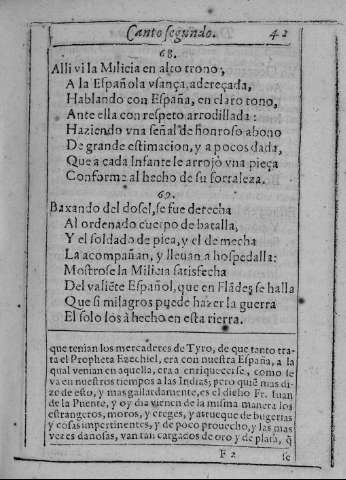 Canto segundo. 42
68.
Alli vi la Milicia en alto trono,
A la Española vsança, adereçada,
Hablando con España, en claro tono,
Ante ella con respeto arrodillada:
Haziendo vna señal de honroso abono
De grande estimacion, y a pocos dada,
Que a cada Infante le arrojò vna pieça
Conforme al hecho de su fortaleza.
69.
Baxando del dosel, se fue derecha
Al ordenado cuerpo de batalla,
Y el soldado de pica, y el de mecha
La acompañan, y lleuan a hospedalla:
Mostrose la Milicia satisfecha
Del valiẽte Español, que en Flãdes se halla
Que si milagros puede hazer la guerra
El solo los à hecho en esta tierra.
que tenian los mercaderes de Tyro, de que tanto tra-
ta el Propheta Ezechiel, era con nuestra España, a la
qual venian en aquella, era a enriquecerse, como se
va en nuestros tiempos a las Indias; pero quiẽ mas di-
ze de esto, y mas gallardamente, es el dicho Fr. Iuan
de la Puente, y oy dia vienen de la misma manera los
estrangeros, moros, y ereges, y a trueque de bugerias
y cosas impertinentes, y de poco prouecho, y las mas
vezes dañosas, van tan cargados de oro y de plata, q̃
F 2 se